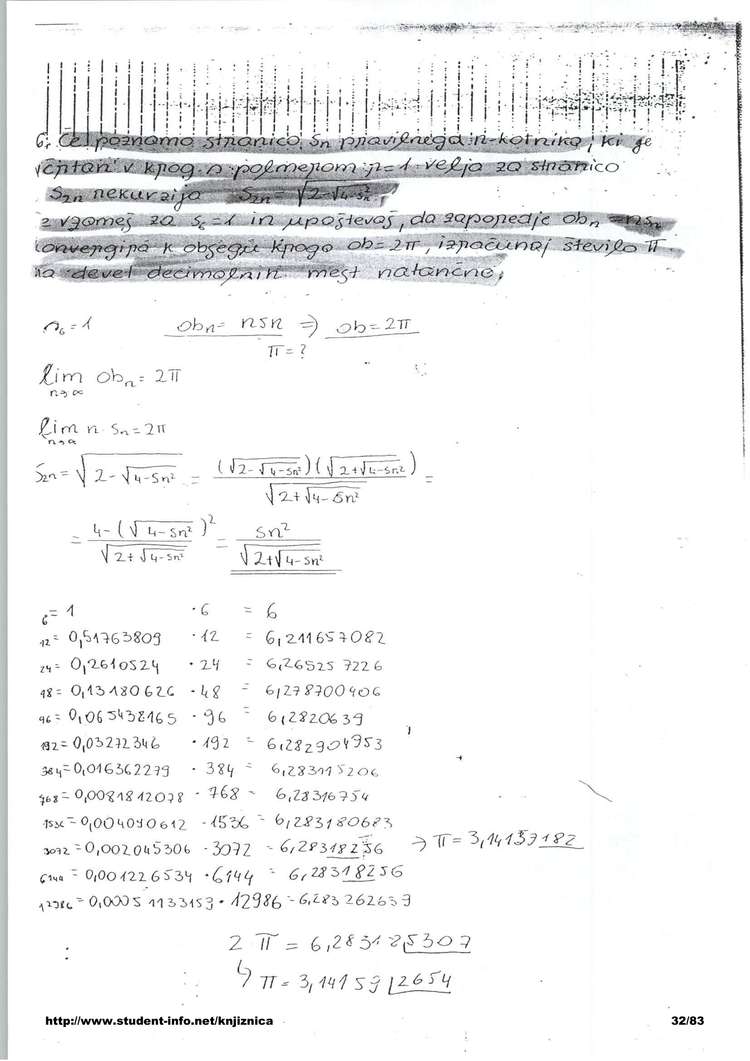 6. Če poznamo stranico Sn pravilnega n-kotnika, ki je
včrtan v krog s polmerom r=1 velja za stranico
S2n rekurzija S2n = √(2-√(4-Sn²)).
z vzameš za S6=1 in upoštevaš, da zaporedje obn = nSn
konvergira k obsegu kroga ob=2π, izračunaj število π
na devet decimalnih mest natančno.
s6 = 1 obn = nsn => ob = 2π
π = ?
lim n→∞ obn = 2π
lim n→∞ n · Sn = 2π
S2n = √(2-√(4-Sn²)) = (√(2-√(4-Sn²)))(√(2+√(4-Sn²))) / √(2+√(4-Sn²)) =
= 4-(√(4-Sn²))² / √(2+√(4-Sn²)) = Sn² / √(2+√(4-Sn²))
6 = 1 · 6 = 6
12 = 0,51763809 · 12 = 6,211657082
24 = 0,2610524 · 24 = 6,265257226
48 = 0,13180626 · 48 = 6,278700406
96 = 0,065438165 · 96 = 6,2820639
192 = 0,03272346 · 192 = 6,282904953
384 = 0,016362279 · 384 = 6,283115206
768 = 0,0081812078 · 768 = 6,28316754
1536 = 0,004090612 · 1536 = 6,283180683
3072 = 0,002045306 · 3072 = 6,28318256 → π = 3,14159182
6144 = 0,001226534 · 6144 = 6,28318256
12986 = 0,00051133153 · 12986 = 6,283262639
2 π = 6,283125307
↳ π = 3,14159 2654
http://www.student-info.net/knjiznica 32/83